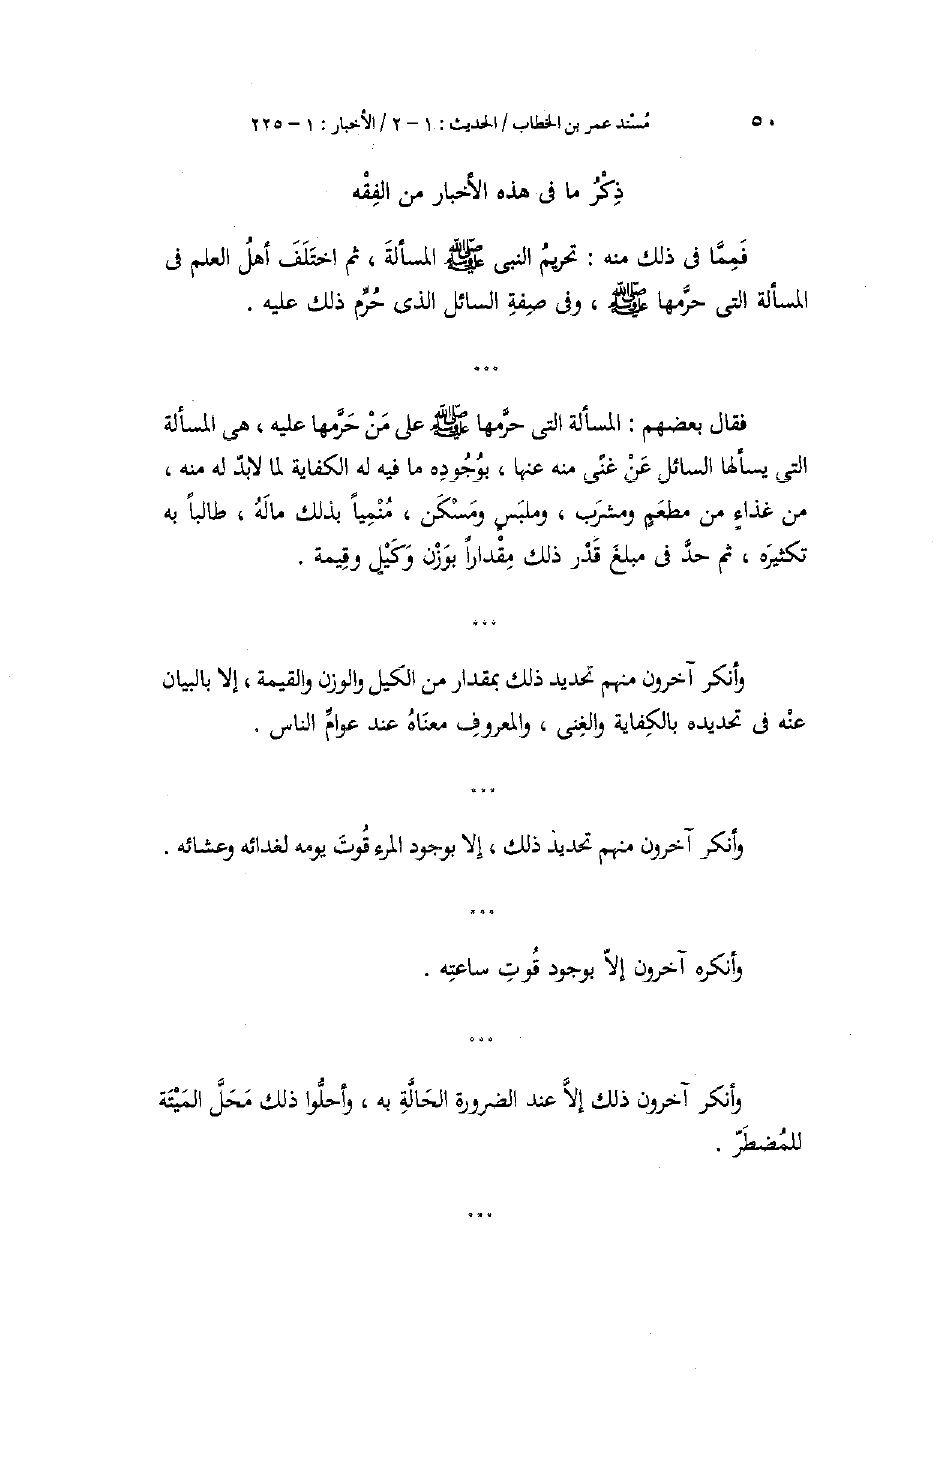 ٥٠ مُسْند عمر بن الخطاب / الحديث : ١ – ٢ / الأخبار : ١ – ٢٢٥
ذِكْرُ ما فى هذه الأخبار من الفِقْه
فَمِمَّا فى ذلك منه : تحريمُ النبى ﷺ المسألةَ ، ثم اختَلَفَ أهلُ العلم فى
المسألة التى حرَّمها ﷺ ، وفى صِفةِ السائل الذى حُرِّم ذلك عليه .
***
فقال بعضهم : المسألة التى حرَّمها ﷺ على مَنْ حَرَّمها عليه ، هى المسألة
التى يسألها السائل عَنْ غنًى منه عنها ، بوُجُودِه ما فيه له الكفاية لما لابدّ له منه ،
من غذاءٍ من مطعَمٍ ومشرَب ، وملبَسٍ ومَسْكَن ، مُنْمِياً بذلك مالَهُ ، طالباً به
تكثيرَه ، ثم حدَّ فى مبلغَ قَدْر ذلك مِقْداراً بوَزْن وَكَيْلٍ وقِيمة .
***
وأنكر آخرون منهم تحديد ذلك بمقدار من الكيل والوزن والقيمة ، إلا بالبيان
عنْه فى تحديده بالكِفاية والغِنى ، والمعروفِ معنَاهُ عند عوامِّ الناس .
***
وأنكر آخرون منهم تحديدَ ذلك ، إلا بوجود المرء قُوتَ يومه لغدائه وعشائه .
***
وأنكره آخرون إلاّ بوجود قُوتِ ساعتِه .
***
وأنكر آخرون ذلك إلاَّ عند الضرورة الحَالَّةِ به ، وأحلُّوا ذلك مَحَلَّ المَيْتَة
للمُضطَرّ .
***